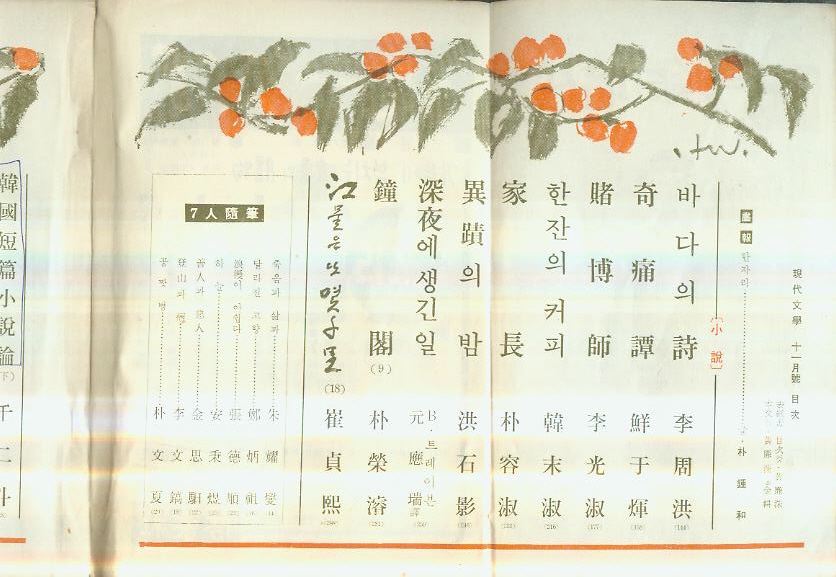 現代文學 十一月號 目次
畵報
朴鍾和
[小說]
바다의 詩 李周洪
奇痛譚 鮮于煇
賭博師 李光淑
한잔의 커피 韓末淑
家長 朴容淑
異蹟의 밤 洪石影
深夜에 생긴 일 B·트레이븐 元應瑞 譯
鐘閣 (9) 朴榮濬
江물은 또 몇 千里 (18) 崔貞熙
7人隨筆
죽음과 삶과 朱耀燮
달라진 고향 鄭炳祖
浪漫이 아쉽다 張德順
하늘 安秉煜
苦人과 惡人 金思
登山과 李文鎬
공짜병 朴文夏
H.W.
韓國短篇小說論 (下) 千二斗